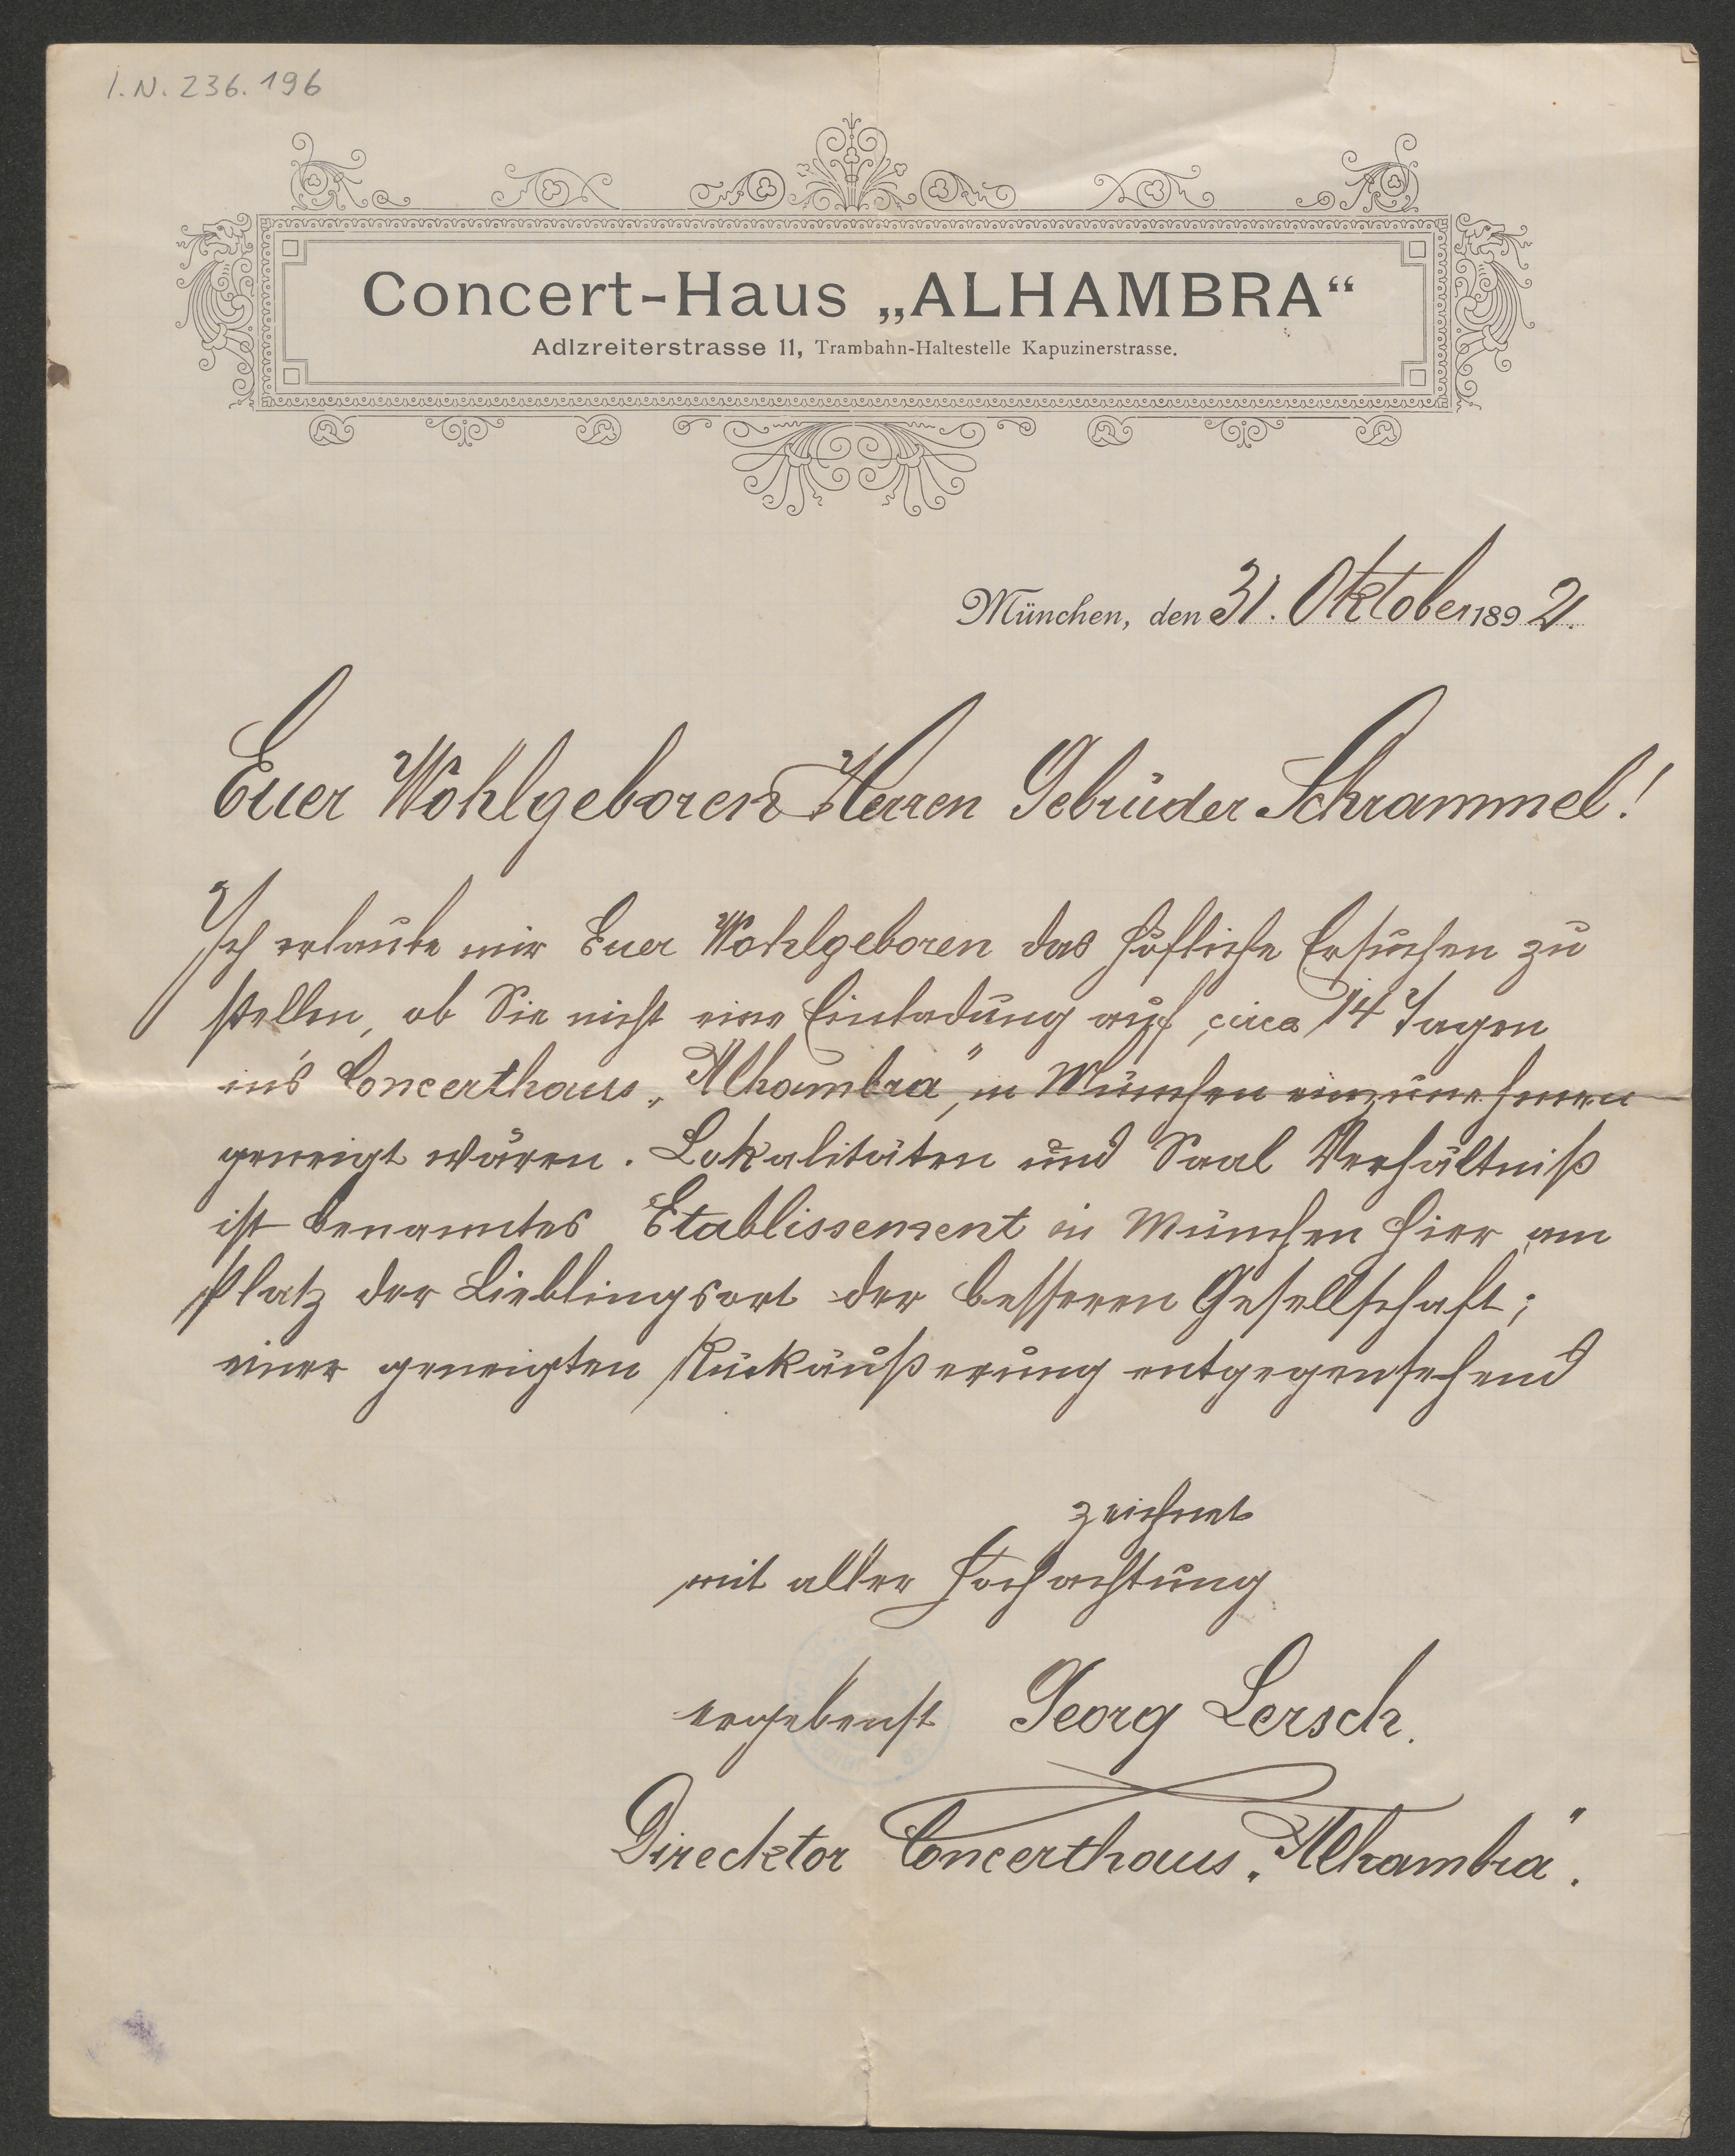 I.N. 236.196
Concert-Haus „ALHAMBRA“
Adlzreiterstrasse 11, Trambahn-Haltestelle Kapuzinerstrasse.
München, den 31. Oktober 1892.
Euer Wohlgeboren Herren Gebrüder Schrammel!
Ich erlaube mir Euer Wohlgeboren das höfliche Ersuchen zu
stellen, ob Sie nicht eine Einladung auf circa 14 Tagen
in's Concerthaus „Alhambra“, in München einzunehmen
geneigt wären. Lokalitäten und Saal Verhältniß
ist benanntes Etablissement in München hier am
Platz der Lieblingsort der besseren Gesellschaft;
einer geneigten Rückäußerung entgegensehend
zeichnet
mit aller Hochachtung
ergebenst Georg Lersch.
Direcktor Concerthaus „Alhambra“.